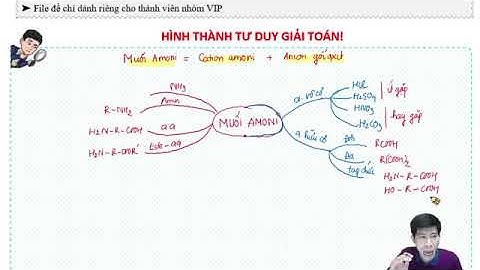 ➤ File đề chỉ dành riêng cho thành viên nhóm VIP
HÌNH THÀNH TƯ DUY GIẢI TOÁN!
Muối Amoni = Cation amoni + Anion gốc axit
NH3
Amin
R-NH2
a.a
H2N-R-COOH
Este-aa
H2N-R-COOR'
MUỐI AMONI
a. vô cơ
H2SO4
HNO3
H2CO3
ít gặp
hay gặp
a hữu cơ
Đơn
RCOOH
Đa
R(COOH)2
tạp chức
H2N-R-COOH
HO-R-COOH